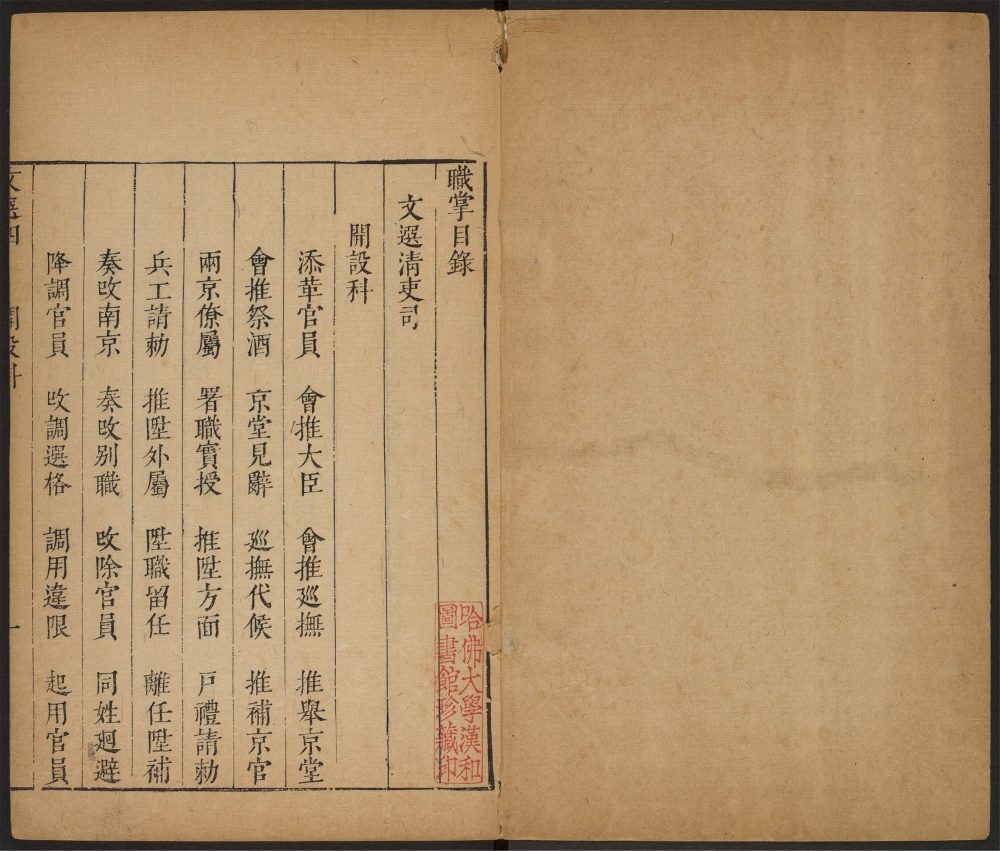 職掌目錄
文選清吏司
開設科
添革官員 會推大臣 會推廵撫 推舉京堂
會推祭酒 京堂見辭 廵撫代候 推補京官
兩京僚屬 署職實授 推陞方面 戸禮請勅
兵工請勅 推陞外屬 陞職留任 離任陞補
奏改南京 奏改别職 改除官員 同姓廻避
降調官員 改調選格 調用違限 起用官員
文選四 開設科 一
哈佛大學漢和
圖書館珍藏印